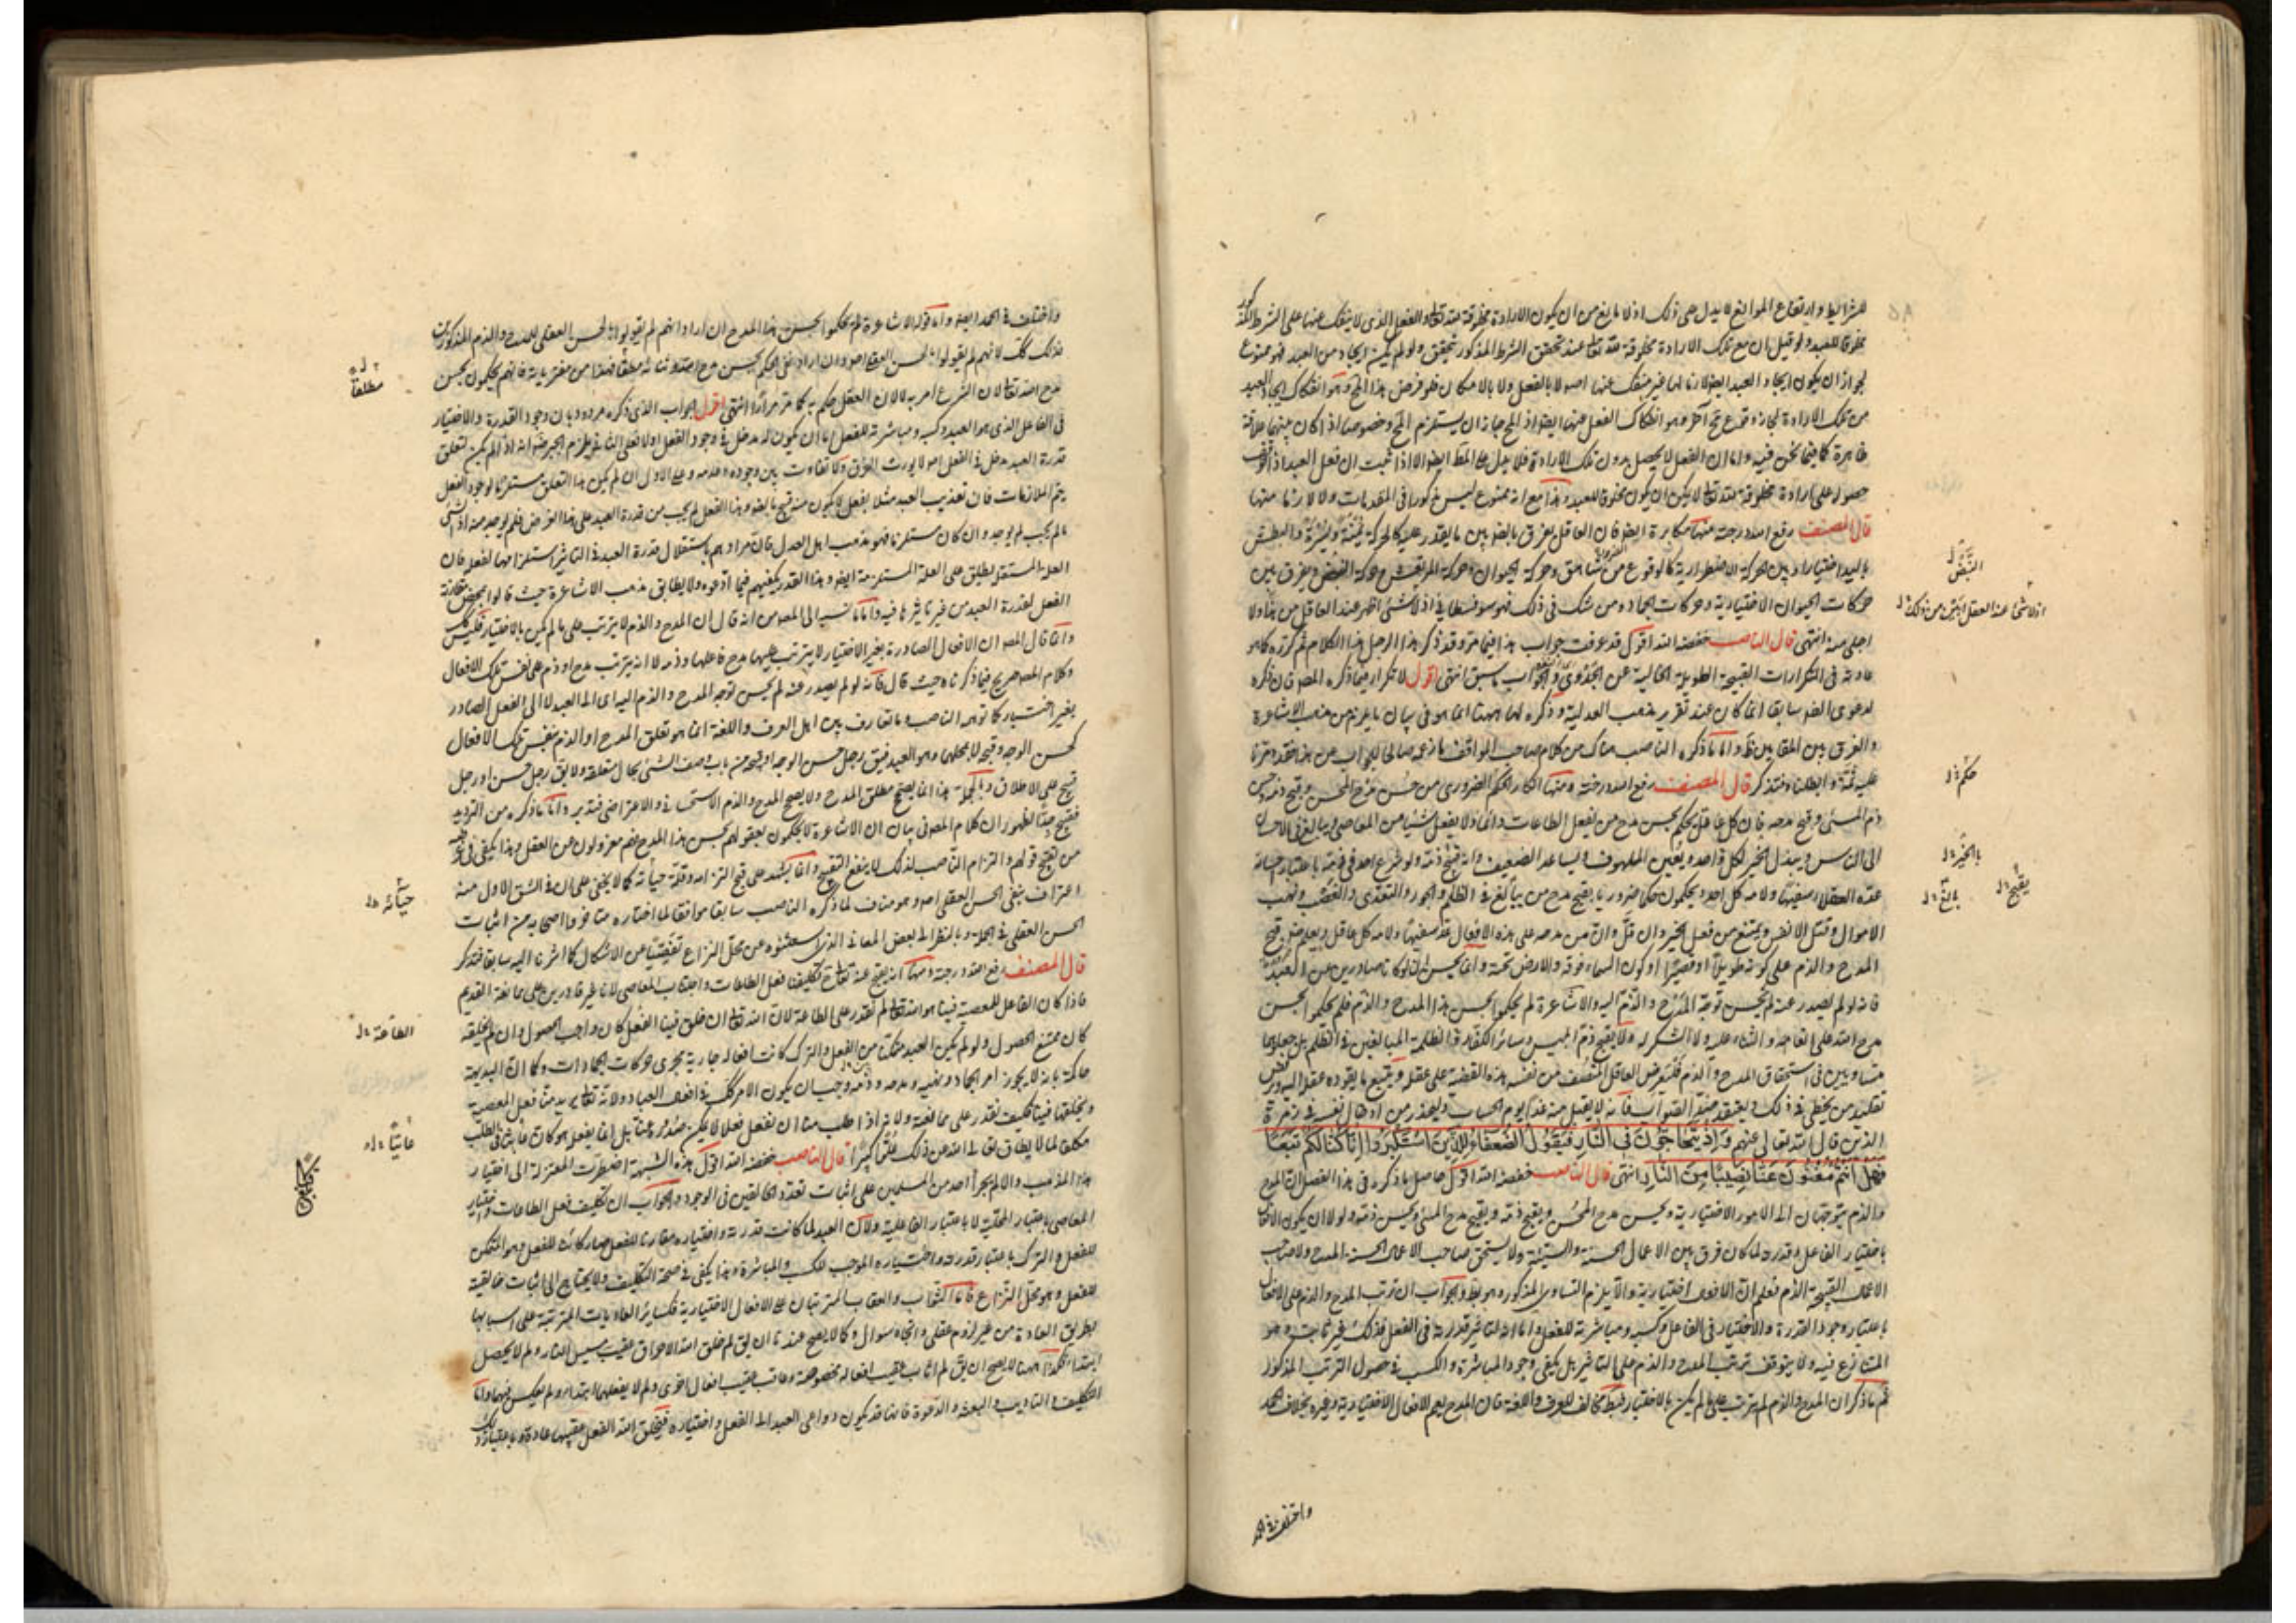 للشرايط وارتفاع الموانع لا يدل على ذلك اذ لا مانع من ان يكون الارادة مخلوقة لله تعالى والفعل الذى لا ينفك عنها على الشرط المذكور
مخلوقا للعبد ولو قيل ان مع تلك الارادة مخلوقة لله تعالى عند تحقق الشرط المذكور تحقق ولو لم يكن ايجاد من العبد فهو ممنوع
لجواز ان يكون ايجاد العبد ايضا لازما لها غير منفك عنها اصلا لا بالفعل ولا بالامكان فلو فرض هذا المحال وهو انفكاك ايجاد العبد
من تلك الارادة لجاز وقوع مح آخر وهو انفكاك الفعل عنها ايضا اذ المح جاز ان يستلزم المح وخصوصا اذا كان بينهما علاقة
ظاهرة كما فيما نحن فيه واما ان الفعل لا يحصل بدون تلك الارادة فلا يدل على المط ايضا الا اذا ثبت ان فعل العبد اذا توقف
حصوله على ارادة مخلوقة لله تعالى لا يمكن ان يكون مخلوقا للعبد وهذا مع انه ممنوع ليس مذكورا فى المقدمات ولا لازما منها
قال المصنف رفع الله درجته منها مكابرة الضرورة فان العاقل يفرق بالضرورة بين ما يقدر عليه كالحركة يمنة ويسرة والبطش
باليد اختيارا وبين الحركة الاضطرارية كالوقوع من شاهق وحركة الحيوان وحركة المرتعش وحركة النبض ويفرق بين
حركات الحيوان الاختيارية وحركات الجماد ومن شك فى ذلك فهو سوفسطائى اذ لا شئ اظهر عند العاقل من هذا ولا
اجلى منه انتهى قال الناصب خفضه الله اقول قد عرفت جواب هذا فيما مر وقد ذكر هذا الرجل هذا الكلام ثم كرره كما هو
عادته فى التكرارات القبيحة الطويلة الخالية عن الجدوى والجواب ما سبق انتهى اقول لا تكرار فيما ذكره المصنف فان ذكره
لدعوى الضرورة سابقا انما كان عند تقرير مذهب العدلية وذكره لها ههنا انما هو فى بيان ما يلزم من مذهب الاشاعرة
والفرق بين المقامين ظ واما ما ذكره الناصب هناك من كلام صاحب المواقف زعمه صالحا للجواب عن هذا فقد مر منا
عليه ثمة وابطلناه فتذكر قال المصنف رفع الله درجته ومنها انكار الحكم الضرورى من حسن مدح المحسن وقبح ذمه وحسن
ذم المسئ وقبح مدحه فان كل عاقل يحكم بحسن مدح من يفعل الطاعات دائما ولا يفعل شيئا من المعاصى ويبالغ فى الاحسان
الى الناس ويبذل الخير لكل واحد ويعين الملهوف ويساعد الضعيف وانه يقبح ذمه ولو شرع احد فى ذمه باعتبار احسانه
عده العقلاء سفيها ولامه كل احد ويحكمون حكما ضروريا بقبح مدح من يبالغ فى الظلم والجور والتعدى والغصب ونهب
الاموال وقتل الانفس ويمتنع من فعل الخير وان قل وان من مدحه على هذه الافعال عد سفيها ولامه كل عاقل ويعلم ضرورة قبح
المدح والذم على كونه طويلا او قصيرا او كون السماء فوقه والارض تحته وانما يحسن لو كانا صادرين عن العبد
فانه لو لم يصدر عنه لم يحسن توجه المدح والذم اليه والاشاعرة لم يحكموا بحسن هذا المدح والذم فلم يحكموا بحسن
مدح الله على انعامه والثناء عليه ولا الشكر له ولا بقبح ذم ابليس وسائر الكفار والظلمة المبالغين فى الظلم بل جعلوهما
متساويين فى استحقاق المدح والذم فليعرض العاقل المنصف من نفسه هذه القضية على عقله ويتبع ما يقوده عقله اليه ويرفض
تقليد من يخطى فى ذلك ويعتقد ضد الصواب فانه لا يقبل منه غدا يوم الحساب وليحذر من ادخال نفسه فى زمرة
الذين قال الله تعالى عنهم وَاِذْ يَتَحَاجُّونَ فِى النَّارِ فَيَقُولُ الضُّعَفَاءُ لِلَّذِينَ اسْتَكْبَرُوا اِنَّا كُنَّا لَكُمْ تَبَعًا
فَهَلْ اَنْتُمْ مُغْنُونَ عَنَّا نَصِيبًا مِنَ النَّارِ انتهى قال الناصب خفضه الله اقول حاصل ما ذكره فى هذا الفصل ان المدح
والذم يتوجهان الى الامور الاختيارية ويحسن مدح المحسن ويقبح ذمه ويقبح مدح المسئ ويحسن ذمه ولولا ان يكون الافعال
باختيار الفاعل وقدرته لما كان فرق بين الاعمال الحسنة والسيئة ولا يستحق صاحب الاعمال الحسنة المدح ولا صاحب
الاعمال القبيحة الذم فعلم ان الافعال اختيارية والا يلزم التساوى المذكور وهو بط والجواب ان ترتب المدح والذم على الافعال
باعتبار وجود القدرة والاختيار فى الفاعل وكسبه ومباشرته للفعل واما انه لتاثير قدرته فى الفعل فذلك غير ثابت وهو
المتنازع فيه ولا يتوقف ترتب المدح والذم على التاثير بل يكفى وجود المباشرة والكسب فى حصول الترتب المذكور
ثم ما ذكر ان المدح والذم لم يترتب على ما لم يكن بالاختيار فبط مخالف للعرف واللغة فان المدح يعم الافعال الاختيارية وغيره بخلاف الحمد
النَّبْض
حكم
بالخير
يقبح
بالغ
واختلف فى الحمد
واختلف فى الحمد ايضا واما قوله الاشاعرة لم يحكموا بحسن هذا المدح ان اراد انهم لم يقولوا بالحسن العقلى للمدح والذم المذكورين
فذلك كك لانهم لم يقولوا بالحسن العقلى اصلا وان اراد نفى الحكم بحسن مدح الله وثنائه مطلقا فهذا من مفترياته فانهم يحكمون بحسن
مدح الله تعالى لان الشرع امر به لا لان العقل حكم به كما مر مرارا انتهى اقول الجواب الذى ذكره مردود بان وجود القدرة والاختيار
فى الفاعل الذى هو العبد وكسبه ومباشرته للفعل اما ان يكون له مدخل فى وجود الفعل اولا فعلى الثانى يلزم الجبر ضرورة انه اذا لم يكن لتعلق
قدرة العبد مدخل فى الفعل اصلا لا يورث الفرق ولا تفاوت بين وجوده وعدمه وعلى الاول ان لم يكن هذا التعلق مستلزما لوجود الفعل
يتم الملازمات فان تعذيب العبد مثلا بفعل لا يكون منه قبيح بالضرورة وهذا الفعل لم يجب من قدرة العبد على هذا الفرض فلم يوجد منه اذ الشئ
ما لم يجب لم يوجد وان كان مستلزما فهو مذهب اهل العدل فان مرادهم باستقلال قدرة العبد فى التاثير استلزامها لفعله فان
العلة المستقلة يطلق على العلة المستلزمة ايضا وهذا القدر يكفيهم فيما ادعوه ولا يطابق مذهب الاشاعرة حيث قالوا بمحض مقارنة
الفعل لقدرة العبد من غير تاثيرها فيه واما ما نسبه الى المصنف من انه قال ان المدح والذم لا يترتب على ما لم يكن بالاختيار فليس كك
وانما قال المصنف ان الافعال الصادرة بغير الاختيار لا يترتب عليها مدح فاعلها وذمه لا انه يترتب مدح او ذم على نفس تلك الافعال
وكلام المصنف صريح فيما ذكرناه حيث قال فانه لو لم يصدر عنه لم يحسن توجه المدح والذم اليه اى الى العبد لا الى الفعل الصادر
بغير اختيار كما توهمه الناصب والتعارف بين اهل العرف واللغة انما هو تعلق المدح او الذم بنفس تلك الافعال
كحسن الوجه وقبحه لا بمحلها وهو العبد فيق رجل حسن الوجه او قبيحه من باب وصف الشئ بحال متعلقه ولا يق رجل حسن او رجل
قبيح على الاطلاق وبالجملة هذا انما يصحح مطلق المدح ولا يصحح المدح والذم الاستحقاقى والاعتراضى فتدبر واما ما ذكره من الترديد
فقبيح جدا لظهور ان كلام المصنف فى بيان ان الاشاعرة لا يحكمون بعقولهم بحسن هذا المدح فهم معزولون عن العقل وهذا يكفى فى
من تقبيح قولهم والتزام الناصب لذلك لا يدفع التقبيح وانما يشهد على قبح التزامه وقلة حيائه كما لا يخفى على ان فى الشق الاول منه
اعتراف بنفى الحسن العقلى اصلا وهو مناف لما ذكره الناصب سابقا موافقا لما اختاره متاخروا اصحابه من اثبات
الحسن العقلى فى الجملة وبالنظر الى بعض المعانى الذى استثنوه عن محل النزاع تفصيا عن الاشكال كما اشرنا اليه سابقا فتذكر
قال المصنف رفع الله درجته ومنها انه يقبح منه تعالى ح تكليفنا فعل الطاعات واجتناب المعاصى لانا غير قادرين على ممانعة القديم
فاذا كان الفاعل للمعصية فينا هو الله تعالى لم نقدر على الطاعة لان الله تعالى ان خلق فينا الفعل كان واجب الحصول وان لم يخلقه
كان ممتنع الحصول ولو لم يكن العبد متمكنا من الفعل والترك كانت افعاله جارية مجرى حركات الجمادات وكما ان البديهة
حاكمة بانه لا يجوز امر الجماد ونهيه ومدحه وذمه وجب ان يكون الامر كك فى افعال العباد ولانه تعالى يريد منا فعل المعصية
ويخلقها فينا فكيف نقدر على ممانعته ولانه اذا طلب منا ان نفعل فعلا لا يمكن صدوره عنا بل انما يفعله هو كان عابثا فى الطلب
مكلفا لما لا يطاق تعالى الله عن ذلك علوا كبيرا قال الناصب خفضه الله اقول هذه الشبهة اضطرت المعتزلة الى اختيار
هذا المذهب والا لم يجترأ احد من المسلمين على اثبات تعدد الخالقين فى الوجود والجواب ان تكليف فعل الطاعات واجتناب
المعاصى باعتبار المحلية لا باعتبار الفاعلية ولان العبد لما كانت قدرته واختياره مقارنا للفعل صار كاسبا للفعل وهو متمكن
للفعل والترك باعتبار قدرته واختياره الموجب للكسب والمباشرة وهذا يكفى فى صحة التكليف ولا يحتاج الى اثبات خالقيته
للفعل وهو محل النزاع واما الثواب والعقاب المترتبان على الافعال الاختيارية فكسائر العاديات المترتبة على اسبابها
بطريق العادة من غير لزوم عقلى واتجاه سوال وكما لا يصح عندنا ان يق لم خلق الله الاحراق عقيب مسيس النار ولم لا يحصل
ابتداء فكذا ههنا لا يصح ان يق لم اثاب عقيب افعال مخصوصة وعاقب عقيب افعال اخرى ولم لا يفعلهما ابتداء ولم يعكس فيهما واما
التكليف والتاديب والبعثة والدعوة فانها قد يكون دواعى العبد الى الفعل واختياره فيخلق الله الفعل عقيبها عادة وباعتبار ذلك
مطلقا
حيائه
الطاعة
عابثا